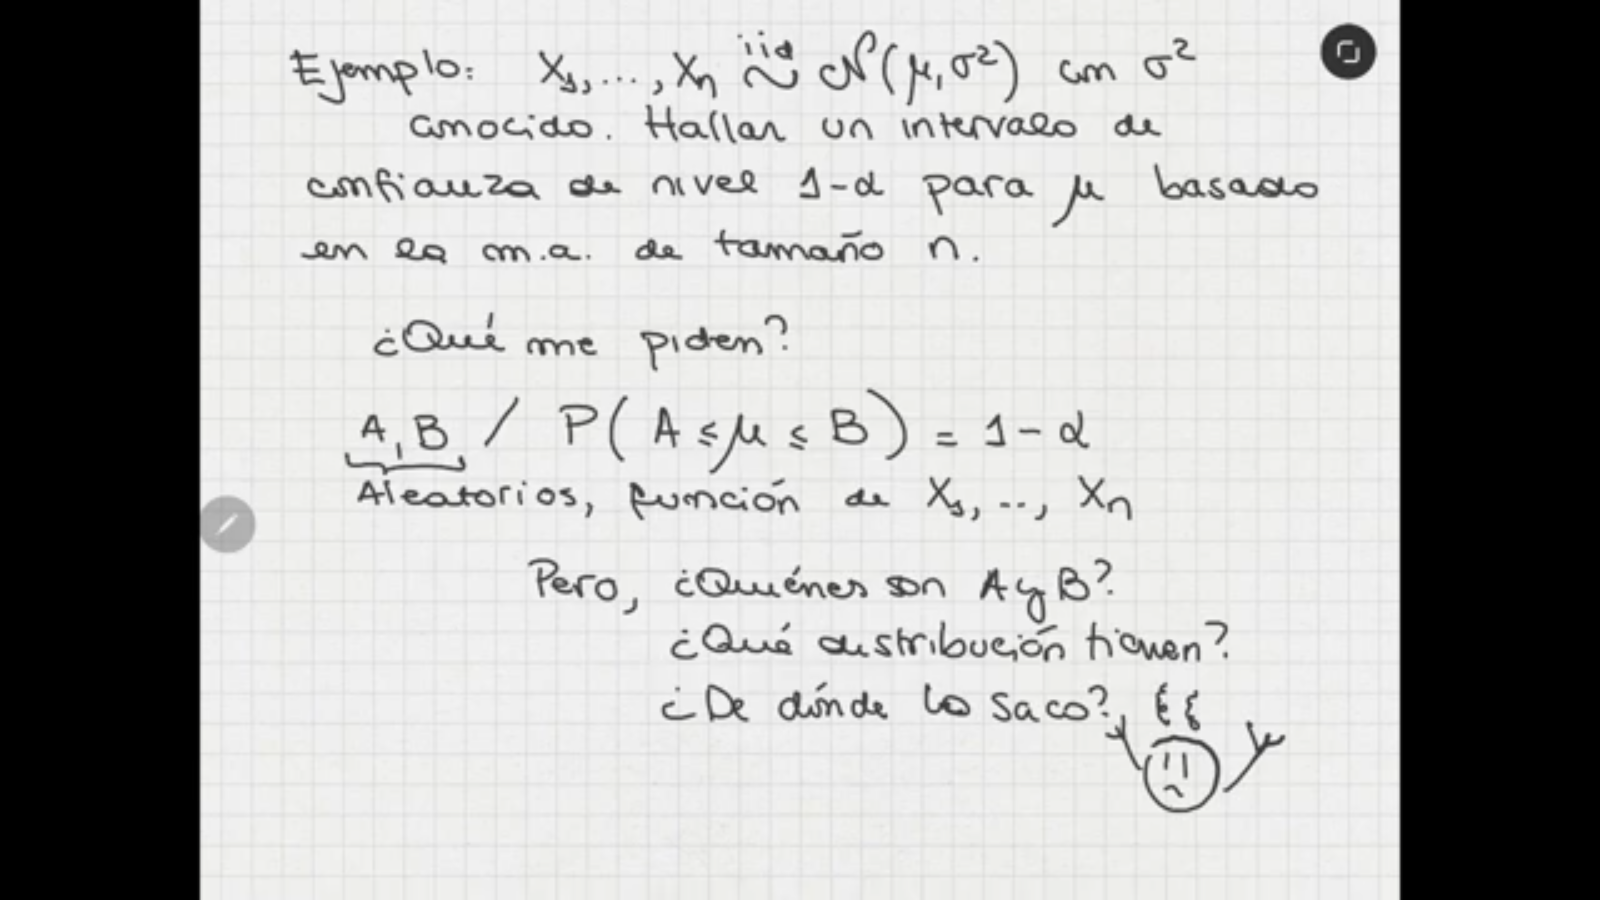 Ejemplo: X₁, ..., Xₙ iid ~ N(μ, σ²) con σ²
conocido. Hallar un intervalo de
confianza de nivel 1-α para μ basado
en la m.a. de tamaño n.
¿Qué me piden?
A, B / P(A ≤ μ ≤ B) = 1 - α
Aleatorios, función de X₁, .., Xₙ
Pero, ¿Quiénes son A y B?
¿Qué distribución tienen?
¿De dónde lo saco?